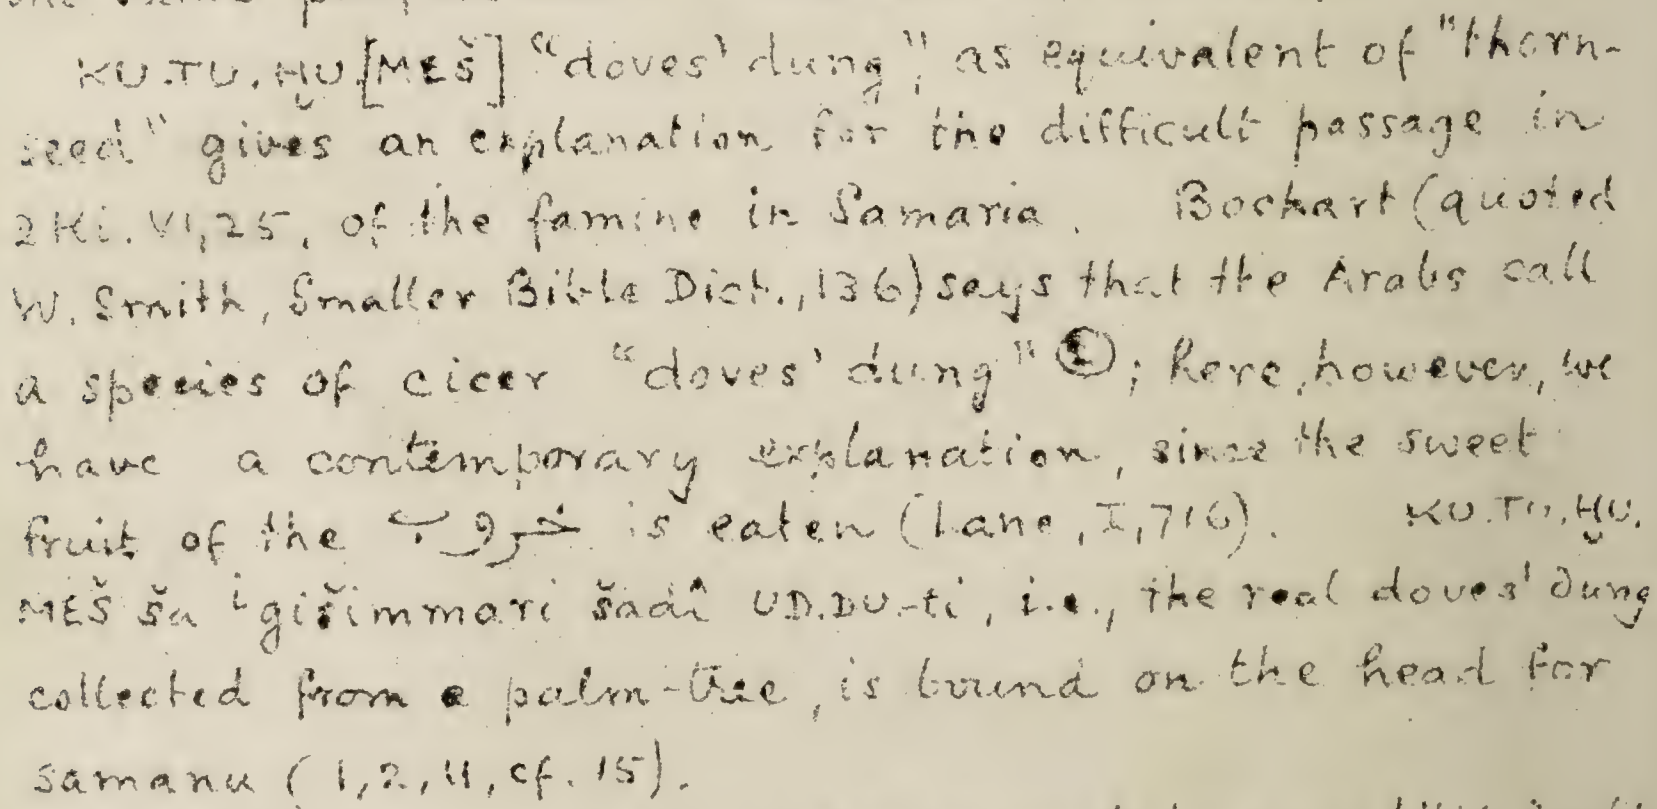 KU.TU.ḪU.[MEŠ] "doves' dung", as equivalent of "thorn-
seed" gives an explanation for the difficult passage in
2 Ki. VI, 25, of the famine in Samaria. Bochart (quoted
W. Smith, Smaller Bible Dict., 136) says that the Arabs call
a species of cicer "doves' dung" ; here, however, we
have a contemporary explanation, since the sweet
fruit of the خروب is eaten (Lane, I, 716). KU.TU.ḪU.
MEŠ ša ⁱgišimmari šadî UD.DU-ti, i.e., the real doves' dung
collected from a palm-tree, is bound on the head for
samanu (1, 2, 11, cf. 15).